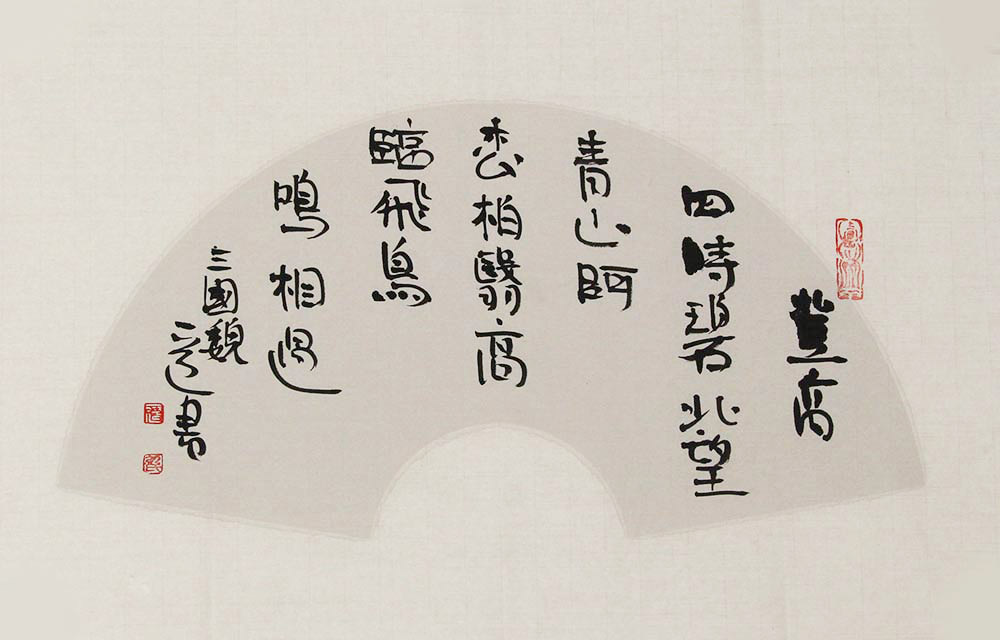 登高
四時碧北望
青山阿
松柏翳高
臨飛鳥
鳴相過
三國魏
書